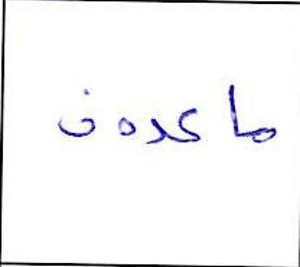 ماكدوف